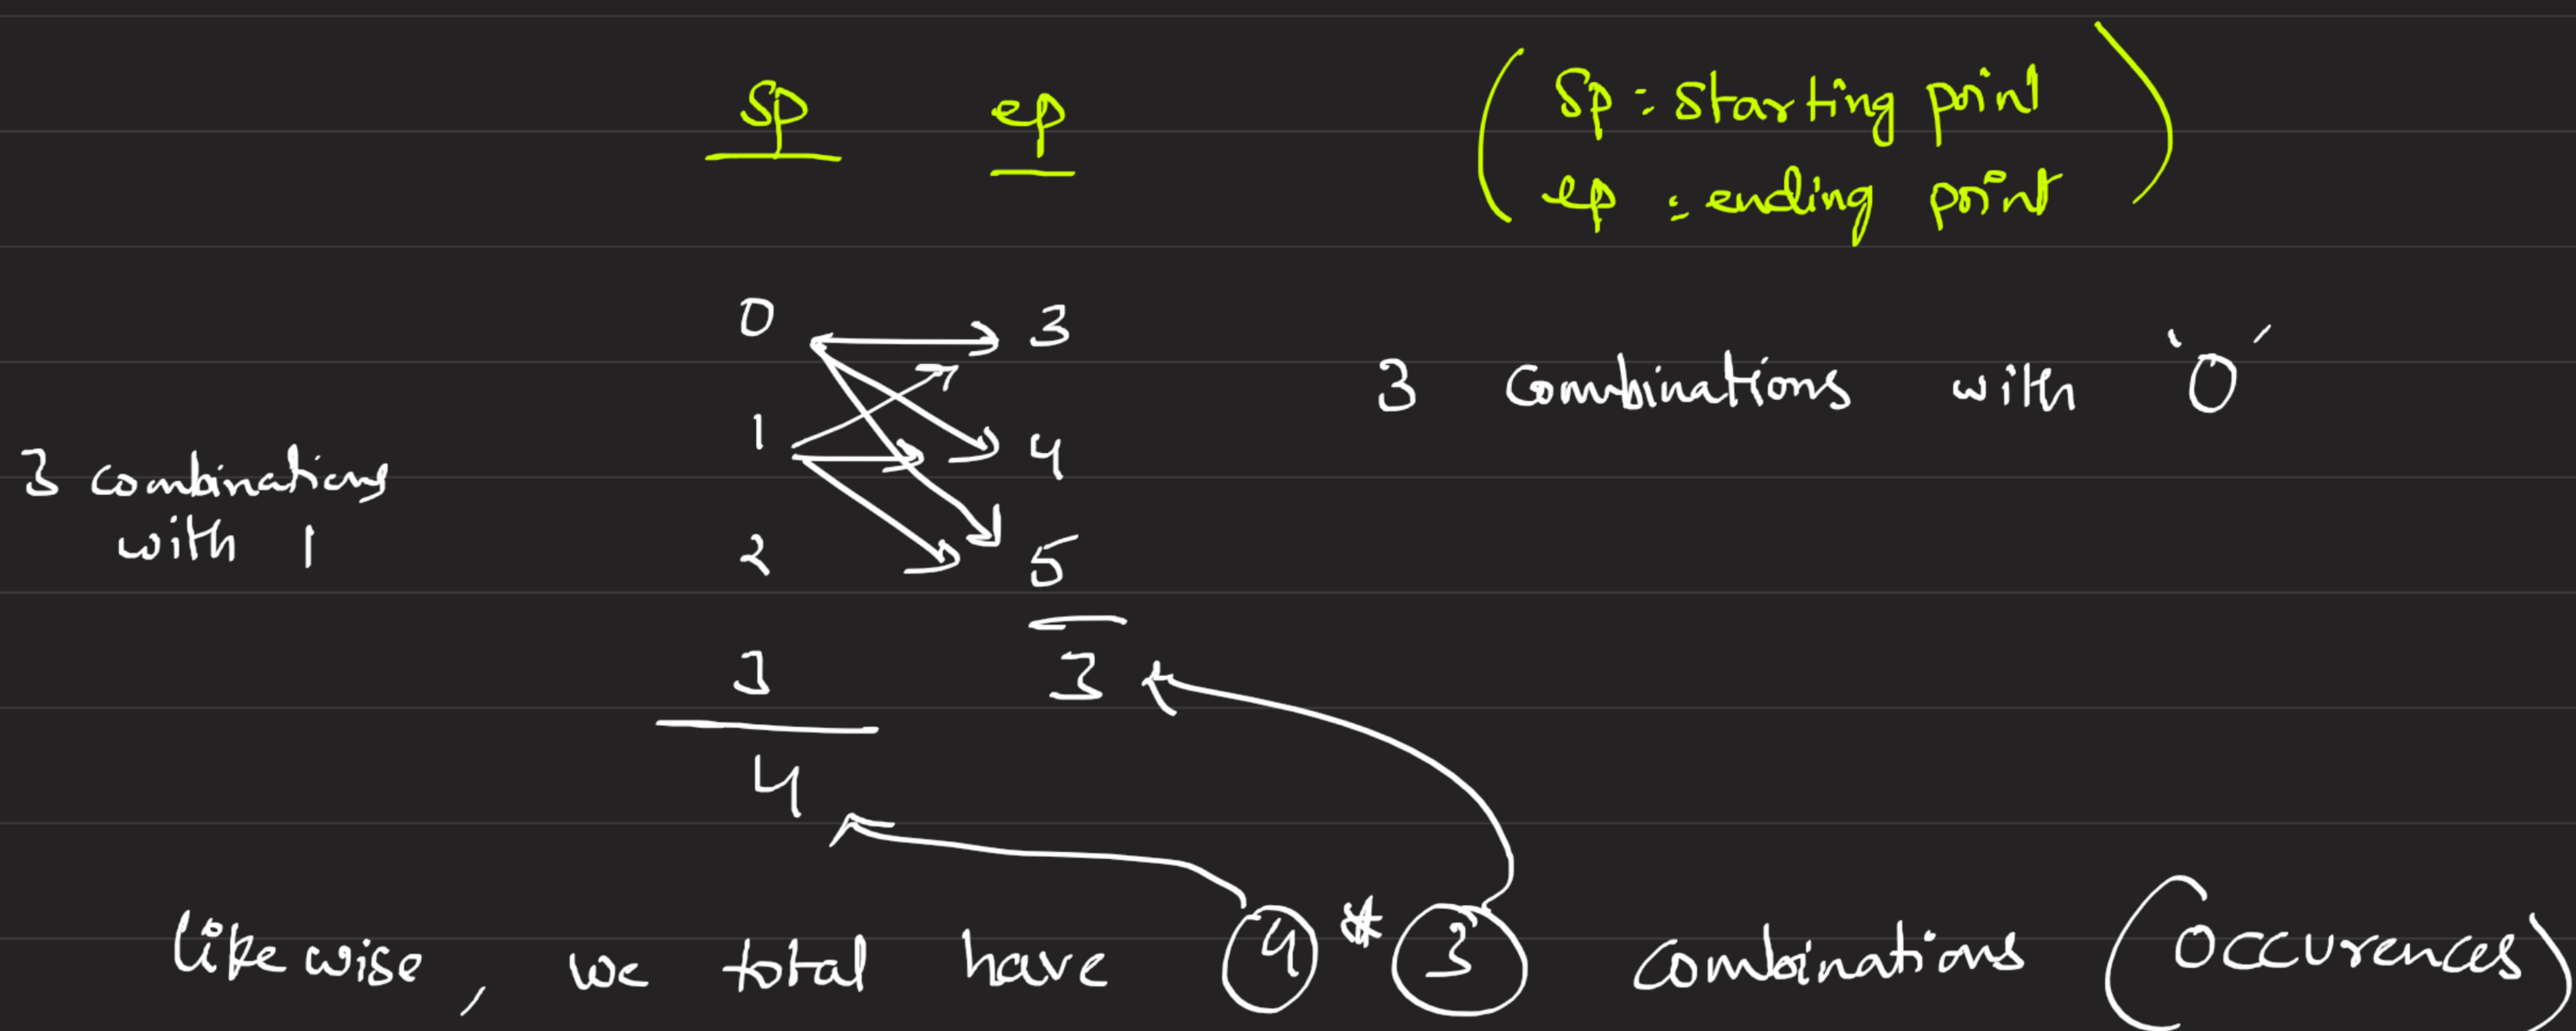 sp ep
( Sp : starting point
ep : ending point )
0 3
3 combinations with '0'
1 4
3 combinations
with 1
2 5
3 3
4
likewise, we total have 4 * 3 combinations (occurences)